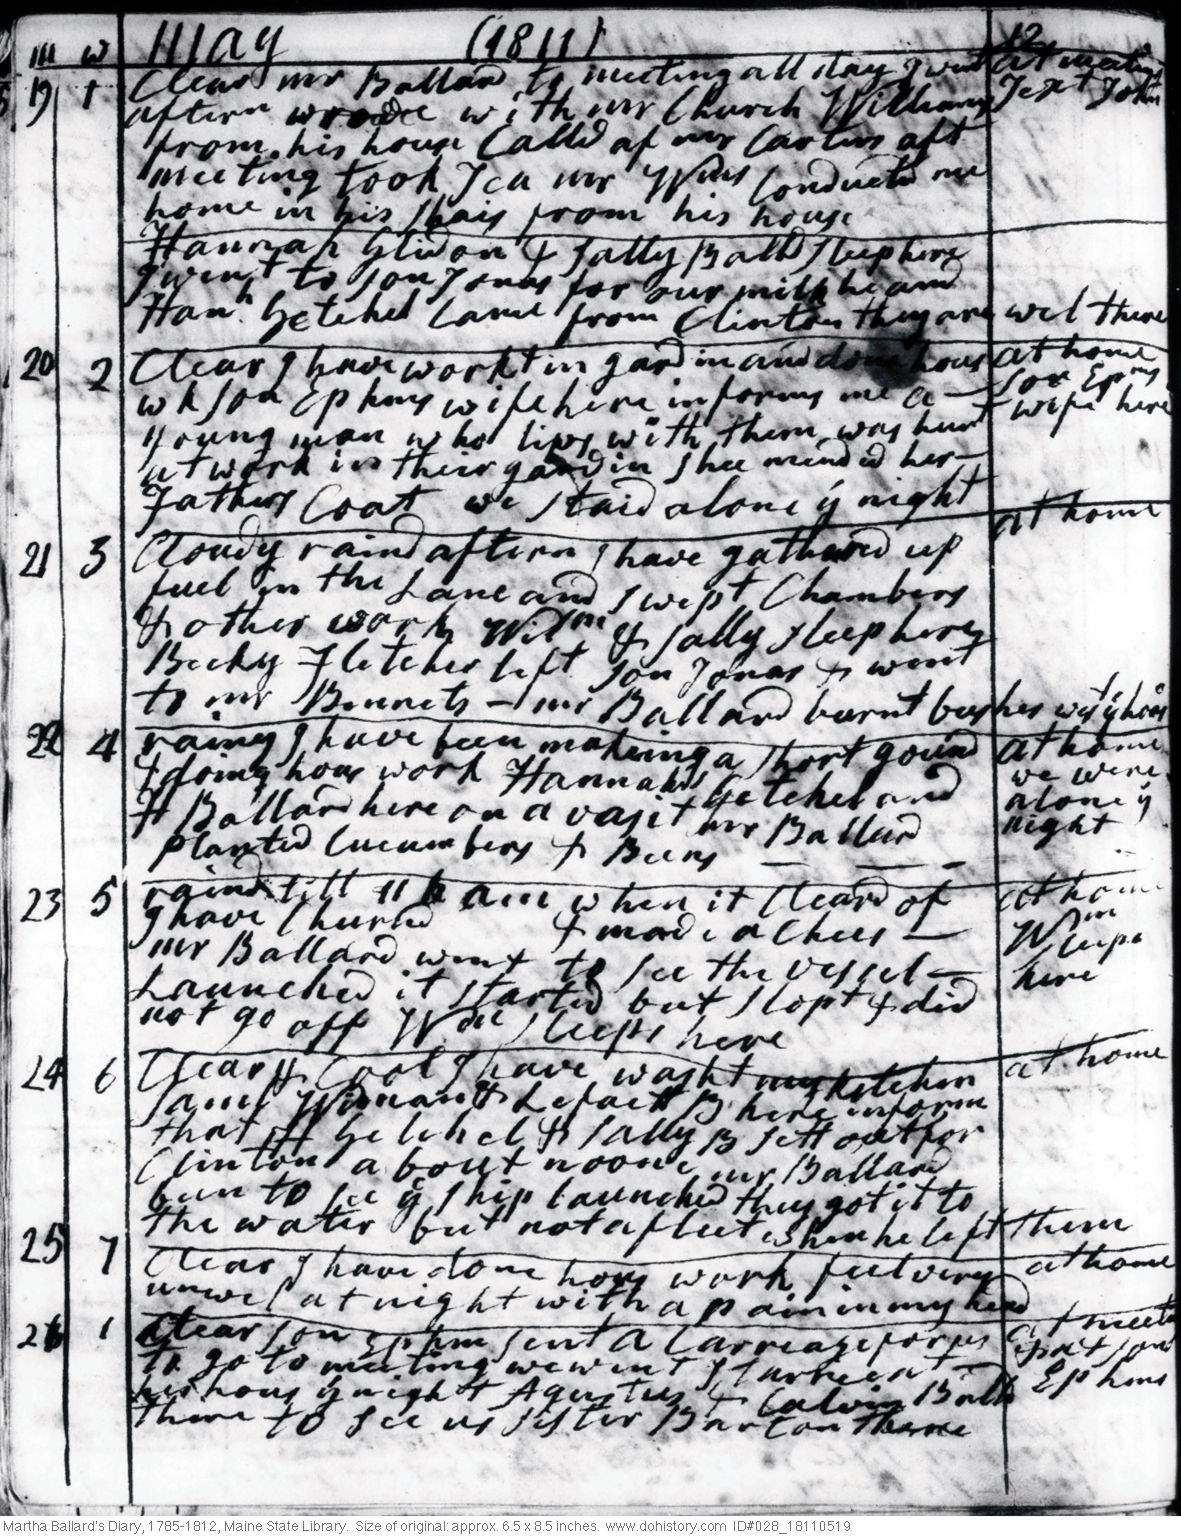 m w May (1811) 12
19 1 Clear mr Ballard to meeting all day I went at meeting
aftern with mr Church Williams Text John
from his house Calld at mr Carters aft
meeting took Tea mr Wms Conducted me
home in his Shais from his house
Hannah Glidon & Sally Balld Sleep here
I went to son Jonas for our milk he and
Hanh Getchel Came from Clinton they are wel there
20 2 Clear I have workt in gardin and done hous at home
wk son Ephms wife here informs me a - son Ephms
young man who livs with them was hurt wife here
at work in their gardin shee mended her-
Fathers Coat we staid alone ÿ night
21 3 Cloudy raind aftern I have gathered up at home
fuel in the Lane and swept Chambers
& other work Wilm & Sally sleep here
Becky Fletcher left son Jonas & went
to mr Bennets - mr Ballard burnt bushes wst ÿ hous
22 4 rainy I have been making a short gound at home
& doing hous work Hannahs Getchel and we were
H Ballard here on a vasit mr Ballard alone ÿ
Planted Cucumbers & Beens night
23 5 raind till 11 h am when it Cleard of at home
I have Churnd & made a Chees - Wm
mr Ballard went to see the vessel - sleeps
Launched it started but stopt & did here
not go off Wm sleeps here
24 6 Clear & Cool I have washt my kitchin at home
Lefaett B here inform
that H Getchel & Sally B sett out for
Clinton about noone mr Ballard
been to see ÿ ship launched they got it to
the water but not afleet when he left them
25 7 Clear I have done hous work feel very at home
unwel at night with a pain in my head
26 1 Clear son Ephm sent a Carreage for us at meet
to go to meeting we went I tarried at & at son
his hous ÿ night Agustus & Calvin Balld Ephms
there to see us sister Barton there
Martha Ballard's Diary, 1785-1812, Maine State Library. Size of original: approx. 6.5 x 8.5 inches. www.dohistory.com ID#028_18110519